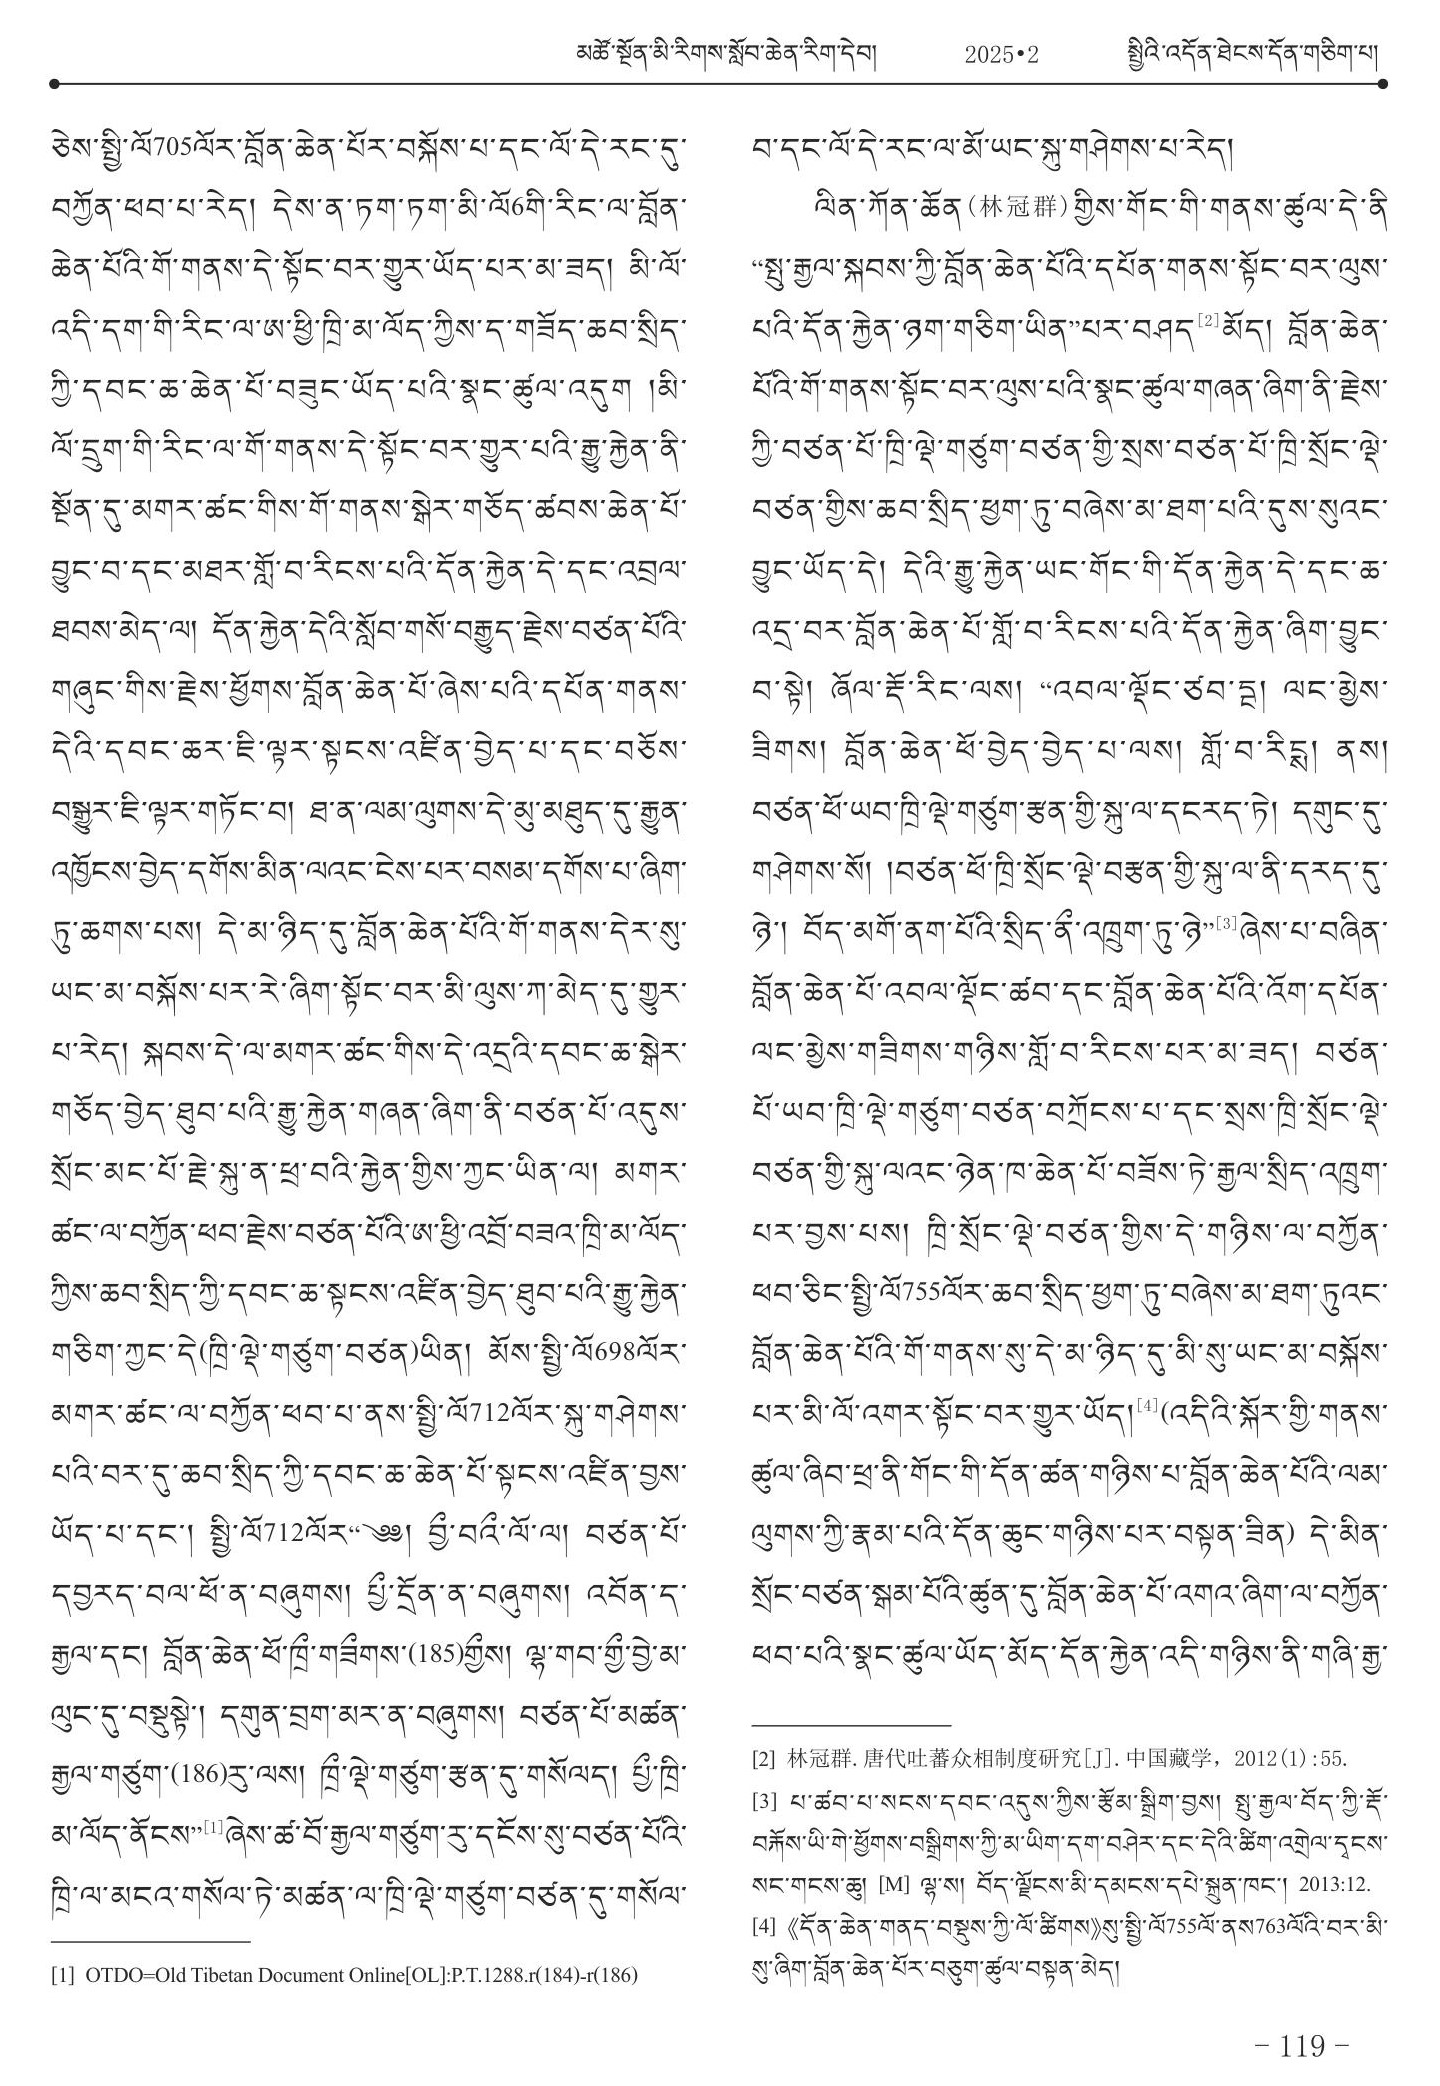 མཚོ་སྔོན་མི་རིགས་སློབ་ཆེན་རིག་དེབ། 2025•2 སྤྱིའི་འདོན་ཐེངས་དོན་གཅིག་པ།
ཅེས་སྤྱི་ལོ705ལོར་བློན་ཆེན་པོར་བསྐོས་པ་དང་ལོ་དེ་རང་དུ་
བཀྱོན་ཕབ་པ་རེད། དེས་ན་ཏག་ཏག་མི་ལོ6གི་རིང་ལ་བློན་
ཆེན་པོའི་གོ་གནས་དེ་སྟོང་བར་གྱུར་ཡོད་པར་མ་ཟད། མི་ལོ་
འདི་དག་གི་རིང་ལ་ཨ་ཕྱི་ཁྲི་མ་ལོད་ཀྱིས་ད་གཟོད་ཆབ་སྲིད་
ཀྱི་དབང་ཆ་ཆེན་པོ་བཟུང་ཡོད་པའི་སྣང་ཚུལ་འདུག །མི་
ལོ་དྲུག་གི་རིང་ལ་གོ་གནས་དེ་སྟོང་བར་གྱུར་པའི་རྒྱུ་རྐྱེན་ནི་
སྔོན་དུ་མགར་ཚང་གིས་གོ་གནས་སྒེར་གཅོད་ཚབས་ཆེན་པོ་
བྱུང་བ་དང་མཐར་གློ་བ་རིངས་པའི་དོན་རྐྱེན་དེ་དང་འབྲལ་
ཐབས་མེད་ལ། དོན་རྐྱེན་དེའི་སློབ་གསོ་བརྒྱུད་རྗེས་བཙན་པོའི་
གཞུང་གིས་རྗེས་ཕྱོགས་བློན་ཆེན་པོ་ཞེས་པའི་དཔོན་གནས་
དེའི་དབང་ཆར་ཇི་ལྟར་སྟངས་འཛིན་བྱེད་པ་དང་བཅོས་
བསྒྱུར་ཇི་ལྟར་གཏོང་བ། ཐ་ན་ལམ་ལུགས་དེ་མུ་མཐུད་དུ་རྒྱུན་
འཁྱོངས་བྱེད་དགོས་མིན་ལའང་ངེས་པར་བསམ་དགོས་པ་ཞིག་
ཏུ་ཆགས་པས། དེ་མ་ཉིད་དུ་བློན་ཆེན་པོའི་གོ་གནས་དེར་སུ་
ཡང་མ་བསྐོས་པར་རེ་ཞིག་སྟོང་བར་མི་ལུས་ཀ་མེད་དུ་གྱུར་
པ་རེད། སྐབས་དེ་ལ་མགར་ཚང་གིས་དེ་འདྲའི་དབང་ཆ་སྒེར་
གཅོད་བྱེད་ཐུབ་པའི་རྒྱུ་རྐྱེན་གཞན་ཞིག་ནི་བཙན་པོ་འདུས་
སྲོང་མང་པོ་རྗེ་སྐུ་ན་ཕྲ་བའི་རྐྱེན་གྱིས་ཀྱང་ཡིན་ལ། མགར་
ཚང་ལ་བཀྱོན་ཕབ་རྗེས་བཙན་པོའི་ཨ་ཕྱི་འབྲོ་བཟའ་ཁྲི་མ་ལོད་
ཀྱིས་ཆབ་སྲིད་ཀྱི་དབང་ཆ་སྟངས་འཛིན་བྱེད་ཐུབ་པའི་རྒྱུ་རྐྱེན་
གཅིག་ཀྱང་དེ(ཁྲི་ལྡེ་གཙུག་བཙན)ཡིན། མོས་སྤྱི་ལོ698ལོར་
མགར་ཚང་ལ་བཀྱོན་ཕབ་པ་ནས་སྤྱི་ལོ712ལོར་སྐུ་གཤེགས་
པའི་བར་དུ་ཆབ་སྲིད་ཀྱི་དབང་ཆ་ཆེན་པོ་སྟངས་འཛིན་བྱས་
ཡོད་པ་དང་། སྤྱི་ལོ712ལོར“༄༅། བྱྀ་བའྀ་ལོ་ལ། བཙན་པོ་
དབྱརད་བལ་ཕོ་ན་བཞུགས། པྱྀ་དྲོན་ན་བཞུགས། འབོན་ད་
རྒྱལ་དང། བློན་ཆེན་ཕོ་ཁྲྀ་གཟྀགས་(185)གྱྀས། ལྷ་གབ་གྱྀ་བྱེ་མ་
ལུང་དུ་བསྡུསྟེ་། དགུན་བྲག་མར་ན་བཞུགས། བཙན་པོ་མཚན་
རྒྱལ་གཙུག་(186)རུ་ལས། ཁྲྀ་ལྡེ་གཙུག་རྩན་དུ་གསོལད། པྱྀ་ཁྲི་
མ་ལོད་ནོངས”[1]ཞེས་ཚ་བོ་རྒྱལ་གཙུག་རུ་དངོས་སུ་བཙན་པོའི་
ཁྲི་ལ་མངའ་གསོལ་ཏེ་མཚན་ལ་ཁྲི་ལྡེ་གཙུག་བཙན་དུ་གསོལ་
[1] OTDO=Old Tibetan Document Online[OL]:P.T.1288.r(184)-r(186)
བ་དང་ལོ་དེ་རང་ལ་མོ་ཡང་སྐུ་གཤེགས་པ་རེད།
ལིན་ཀོན་ཆོན(林冠群)གྱིས་གོང་གི་གནས་ཚུལ་དེ་ནི
“སྤུ་རྒྱལ་སྐབས་ཀྱི་བློན་ཆེན་པོའི་དཔོན་གནས་སྟོང་བར་ལུས་
པའི་དོན་རྐྱེན་ཉག་གཅིག་ཡིན”པར་བཤད[2]མོད། བློན་ཆེན་
པོའི་གོ་གནས་སྟོང་བར་ལུས་པའི་སྣང་ཚུལ་གཞན་ཞིག་ནི་རྗེས་
ཀྱི་བཙན་པོ་ཁྲི་ལྡེ་གཙུག་བཙན་གྱི་སྲས་བཙན་པོ་ཁྲི་སྲོང་ལྡེ་
བཙན་གྱིས་ཆབ་སྲིད་ཕྱག་ཏུ་བཞེས་མ་ཐག་པའི་དུས་སུའང་
བྱུང་ཡོད་དེ། དེའི་རྒྱུ་རྐྱེན་ཡང་གོང་གི་དོན་རྐྱེན་དེ་དང་ཆ་
འདྲ་བར་བློན་ཆེན་པོ་གློ་བ་རིངས་པའི་དོན་རྐྱེན་ཞིག་བྱུང་
བ་སྟེ། ཞོལ་རྡོ་རིང་ལས། “འབལ་ལྡོང་ཙབ་དྦ། ལང་མྱེས་
ཟིགས། བློན་ཆེན་ཕོ་བྱེད་བྱེད་པ་ལས། གློ་བ་རིངྶ། ནས།
བཙན་ཕོ་ཡབ་ཁྲི་ལྡེ་གཙུག་རྩན་གྱི་སྐུ་ལ་དངརད་ཏེ། དགུང་དུ་
གཤེགས་སོ། །བཙན་ཕོ་ཁྲི་སྲོང་ལྡེ་བརྩན་གྱི་སྐུ་ལ་ནི་དརད་དུ་
ཉེ་། བོད་མགོ་ནག་པོའི་སྲིད་ནྀ་འཁྲུག་ཏུ་ཉེ”[3]ཞེས་པ་བཞིན་
བློན་ཆེན་པོ་འབལ་ལྡོང་ཚབ་དང་བློན་ཆེན་པོའི་འོག་དཔོན་
ལང་མྱེས་གཟིགས་གཉིས་གློ་བ་རིངས་པར་མ་ཟད། བཙན་
པོ་ཡབ་ཁྲི་ལྡེ་གཙུག་བཙན་བཀྲོངས་པ་དང་སྲས་ཁྲི་སྲོང་ལྡེ་
བཙན་གྱི་སྐུ་ལའང་ཉེན་ཁ་ཆེན་པོ་བཟོས་ཏེ་རྒྱལ་སྲིད་འཁྲུག་
པར་བྱས་པས། ཁྲི་སྲོང་ལྡེ་བཙན་གྱིས་དེ་གཉིས་ལ་བཀྱོན་
ཕབ་ཅིང་སྤྱི་ལོ755ལོར་ཆབ་སྲིད་ཕྱག་ཏུ་བཞེས་མ་ཐག་ཏུའང་
བློན་ཆེན་པོའི་གོ་གནས་སུ་དེ་མ་ཉིད་དུ་མི་སུ་ཡང་མ་བསྐོས་
པར་མི་ལོ་འགར་སྟོང་བར་གྱུར་ཡོད།[4](འདིའི་སྐོར་གྱི་གནས་
ཚུལ་ཞིབ་ཕྲ་ནི་གོང་གི་དོན་ཚན་གཉིས་པ་བློན་ཆེན་པོའི་ལམ་
ལུགས་ཀྱི་རྣམ་པའི་དོན་ཆུང་གཉིས་པར་བསྟན་ཟིན) དེ་མིན་
སྲོང་བཙན་སྒམ་པོའི་ཚུན་དུ་བློན་ཆེན་པོ་འགའ་ཞིག་ལ་བཀྱོན་
ཕབ་པའི་སྣང་ཚུལ་ཡོད་མོད་དོན་རྐྱེན་འདི་གཉིས་ནི་གཞི་རྒྱ་
[2] 林冠群. 唐代吐蕃众相制度研究[J]. 中国藏学，2012(1):55.
[3] པ་ཚབ་པ་སངས་དབང་འདུས་ཀྱིས་རྩོམ་སྒྲིག་བྱས། སྤུ་རྒྱལ་བོད་ཀྱི་རྡོ་
བརྐོས་ཡི་གེ་ཕྱོགས་བསྒྲིགས་ཀྱི་མ་ཡིག་དག་བཤེར་དང་དེའི་ཚིག་འགྲེལ་དྭངས་
སང་གངས་ཆུ། [M] ལྷ་ས། བོད་ལྗོངས་མི་དམངས་དཔེ་སྐྲུན་ཁང་། 2013:12.
[4]《དོན་ཆེན་གནད་བསྡུས་ཀྱི་ལོ་ཚིགས》སུ་སྤྱི་ལོ755ལོ་ནས763ལོའི་བར་མི་
སུ་ཞིག་བློན་ཆེན་པོར་བཅུག་ཚུལ་བསྟན་མེད།
- 119 -